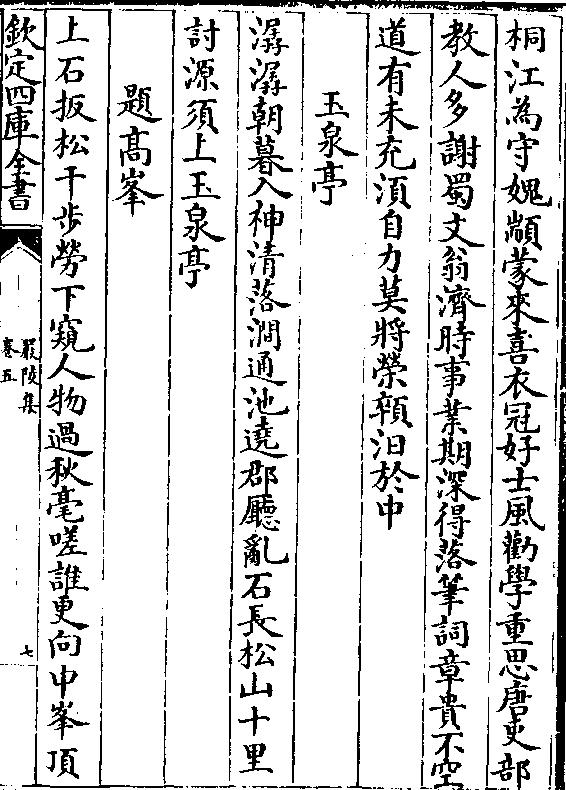 桐江為守媿顓蒙來喜衣冠好士風勸學重思唐吏部
教人多謝蜀文翁濟時事業期深得落筆詞章貴不空
道有未充湏自力莫將榮顇汨於中
玉泉亭
潺潺朝暮入神清落澗通池遶郡廳亂石長松山十里
討源須上玉泉亭
題髙峯
上石扳松千步勞下窺人物過秋毫嗟誰更向中峯頂
欽定四庫全書
嚴陵集
卷五
七